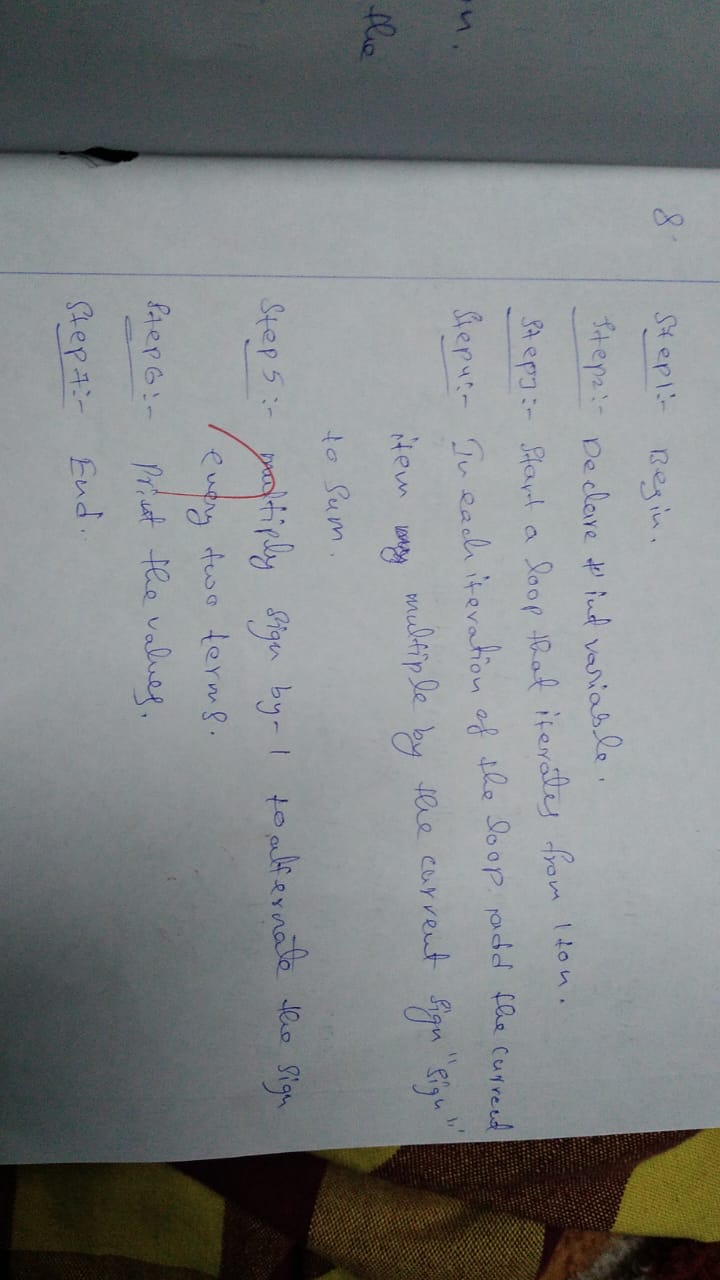 n.
the
8.
Step1:- Begin.
Step2:- Declare int variable.
Step3:- Start a loop that iterates from 1 to n.
Step4:- In each iteration of the loop, add the current
item multiple by the current sign "sign"
to sum.
Step 5:- multiply sign by -1 to alternate the sign
every two terms.
Step6:- Print the values.
Step7:- End.